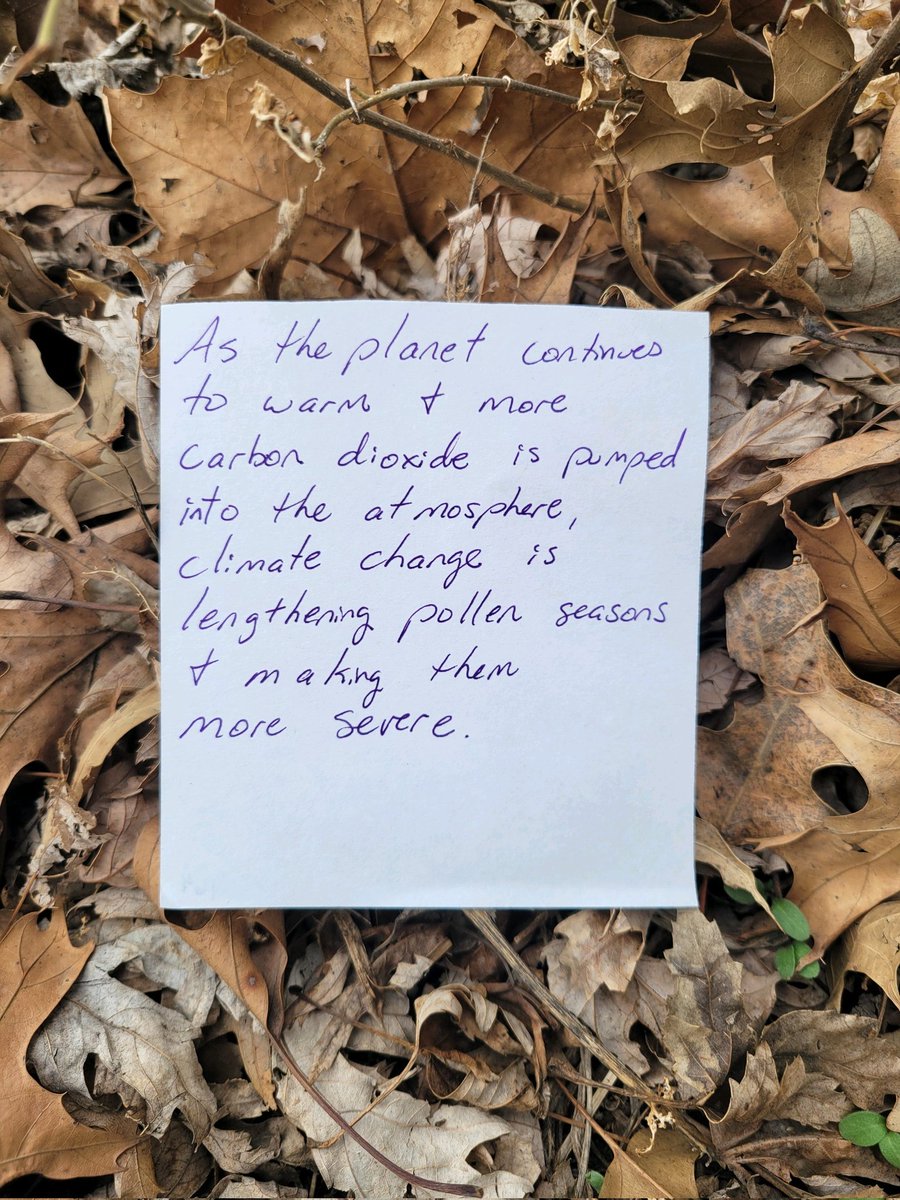 As the planet continues
to warm & more
carbon dioxide is pumped
into the atmosphere,
climate change is
lengthening pollen seasons
& making them
more severe.